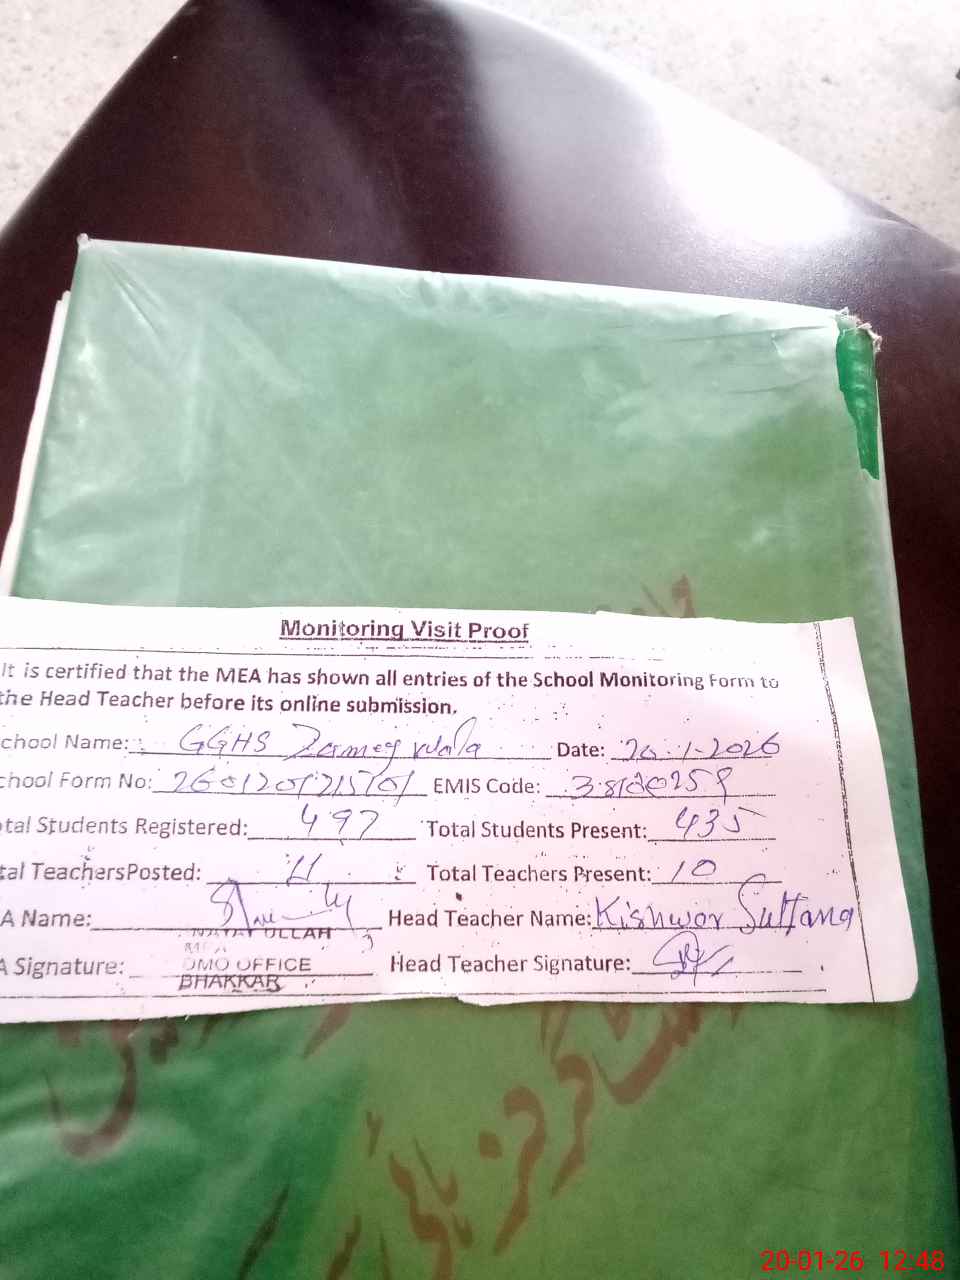 Monitoring Visit Proof
It is certified that the MEA has shown all entries of the School Monitoring Form to
the Head Teacher before its online submission.
chool Name: GGHS Wala Date: 20-1-2026
chool Form No: EMIS Code:
tal Students Registered: 497 Total Students Present: 435
tal TeachersPosted: 11 Total Teachers Present: 10
A Name: Head Teacher Name: Kishwor Sultana
NAYAT ULLAH
MEA
A Signature: DMO OFFICE Head Teacher Signature:
BHAKKAR
گرلز ہائی
20-01-26 12:48